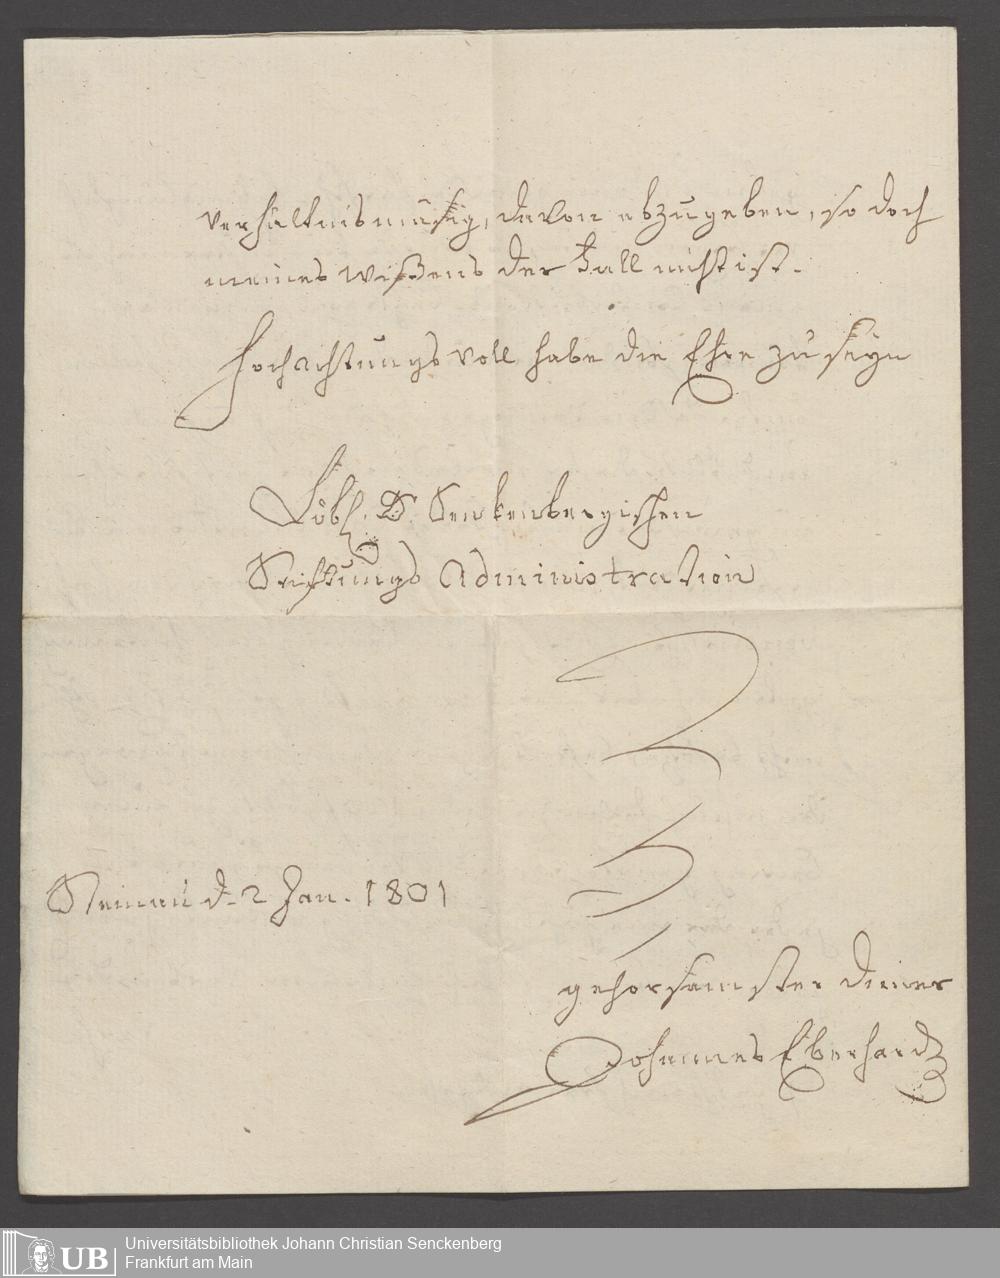 verhältnismäsig, davon abzugeben, so doch
meines wißens der Fall nicht ist.
Hochachtungsvoll habe die Ehre zu seyn
Löbl. D. Senkenbergischen
Stiftungs Administration
Steinau d. 2 Jan. 1801
gehorsamster Diener
Johannes Eberhard
UB Universitätsbibliothek Johann Christian Senckenberg
Frankfurt am Main